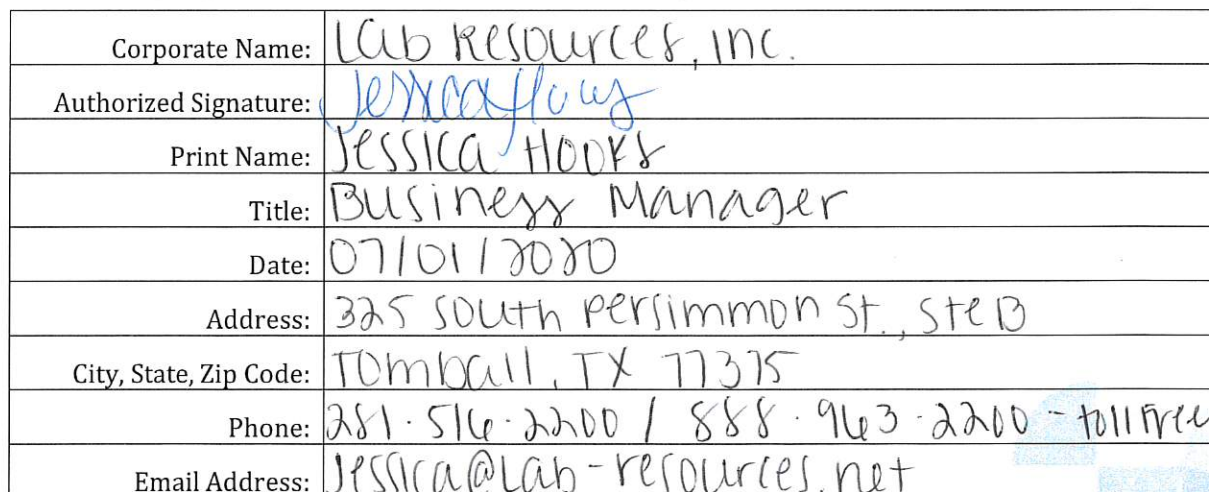 Corporate Name: Lab Resources, Inc.
Authorized Signature: Jessica Hooks
Print Name: Jessica Hooks
Title: Business Manager
Date: 07/01/2020
Address: 325 South Persimmon St., Ste B
City, State, Zip Code: Tomball, TX 77375
Phone: 281.516.2200 / 888.963.2200 - toll free
Email Address: Jessica@Lab-resources.net